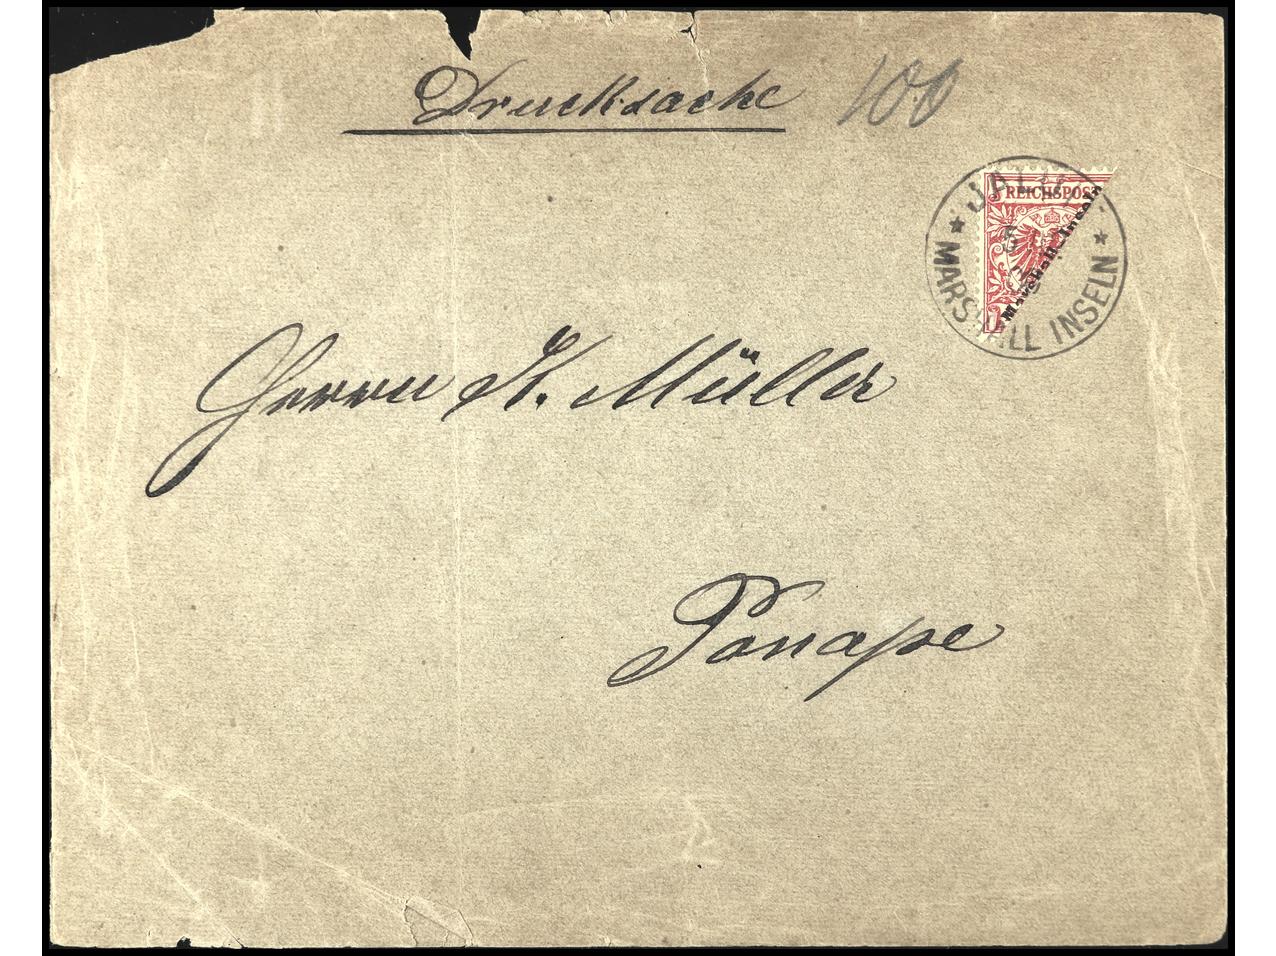 Drucksache 100
REICHSPOST
Marschall-Inseln
MARSHALL INSELN
Herrn K. Müller
Ponape